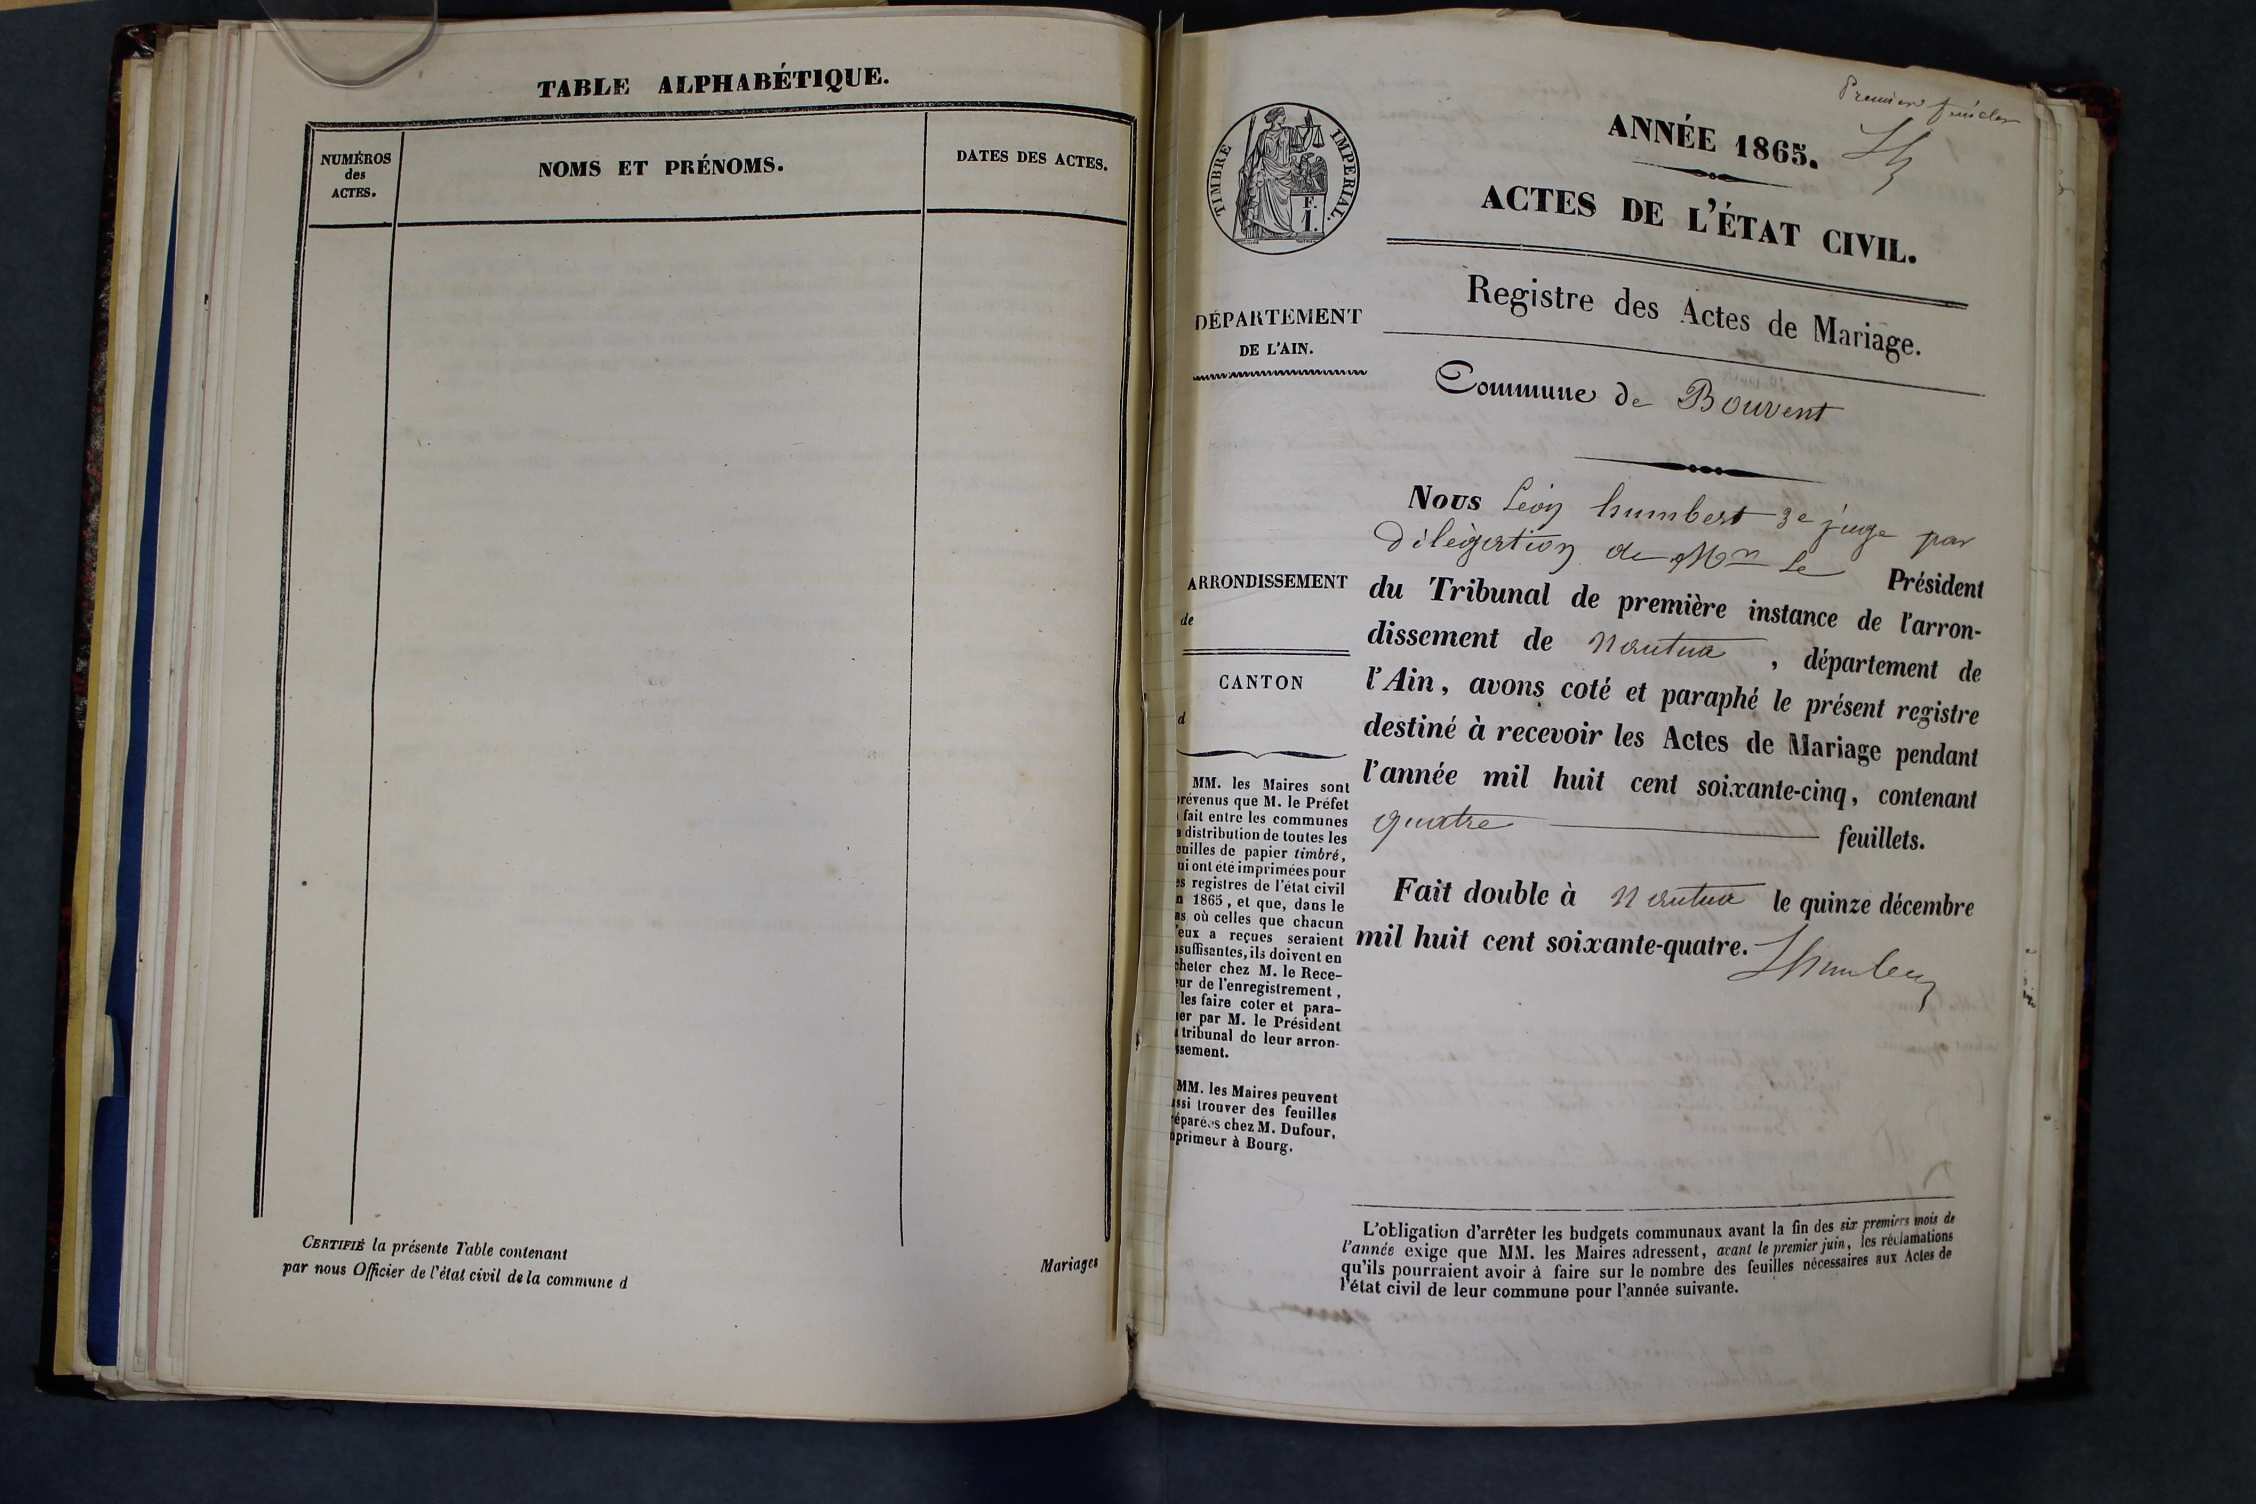 TABLE ALPHABÉTIQUE.
NUMÉROS
des
ACTES.
NOMS ET PRÉNOMS.
DATES DES ACTES.
CERTIFIÉ la présente Table contenant
Mariages
par nous Officier de l'état civil de la commune d
Premier feuillet
TIMBRE IMPERIAL.
F.
1.
ANNÉE 1865.
ACTES DE L'ÉTAT CIVIL.
Registre des Actes de Mariage.
DÉPARTEMENT
DE L'AIN.
Commune de Bouvent
ARRONDISSEMENT
de
CANTON
d
MM. les Maires sont
prévenus que M. le Préfet
fait entre les communes
distribution de toutes les
feuilles de papier timbré,
ui ont été imprimées pour
es registres de l'état civil
n 1865, et que, dans le
as où celles que chacun
'eux a reçues seraient
suffisantes, ils doivent en
cheter chez M. le Rece-
ur de l'enregistrement,
les faire coter et para-
er par M. le Président
tribunal de leur arron-
ssement.
MM. les Maires peuvent
ssi trouver des feuilles
éparées chez M. Dufour,
primeur à Bourg.
Nous Léon humbert 3e juge par
délégation de Mr le Président
du Tribunal de première instance de l'arron-
dissement de Nantua, département de
l'Ain, avons coté et paraphé le présent registre
destiné à recevoir les Actes de Mariage pendant
l'année mil huit cent soixante-cinq, contenant
quatre feuillets.
Fait double à Nantua le quinze décembre
mil huit cent soixante-quatre.
L'obligation d'arrêter les budgets communaux avant la fin des six premiers mois de
l'année exige que MM. les Maires adressent, avant le premier juin, les réclamations
qu'ils pourraient avoir à faire sur le nombre des feuilles nécessaires aux Actes de
l'état civil de leur commune pour l'année suivante.